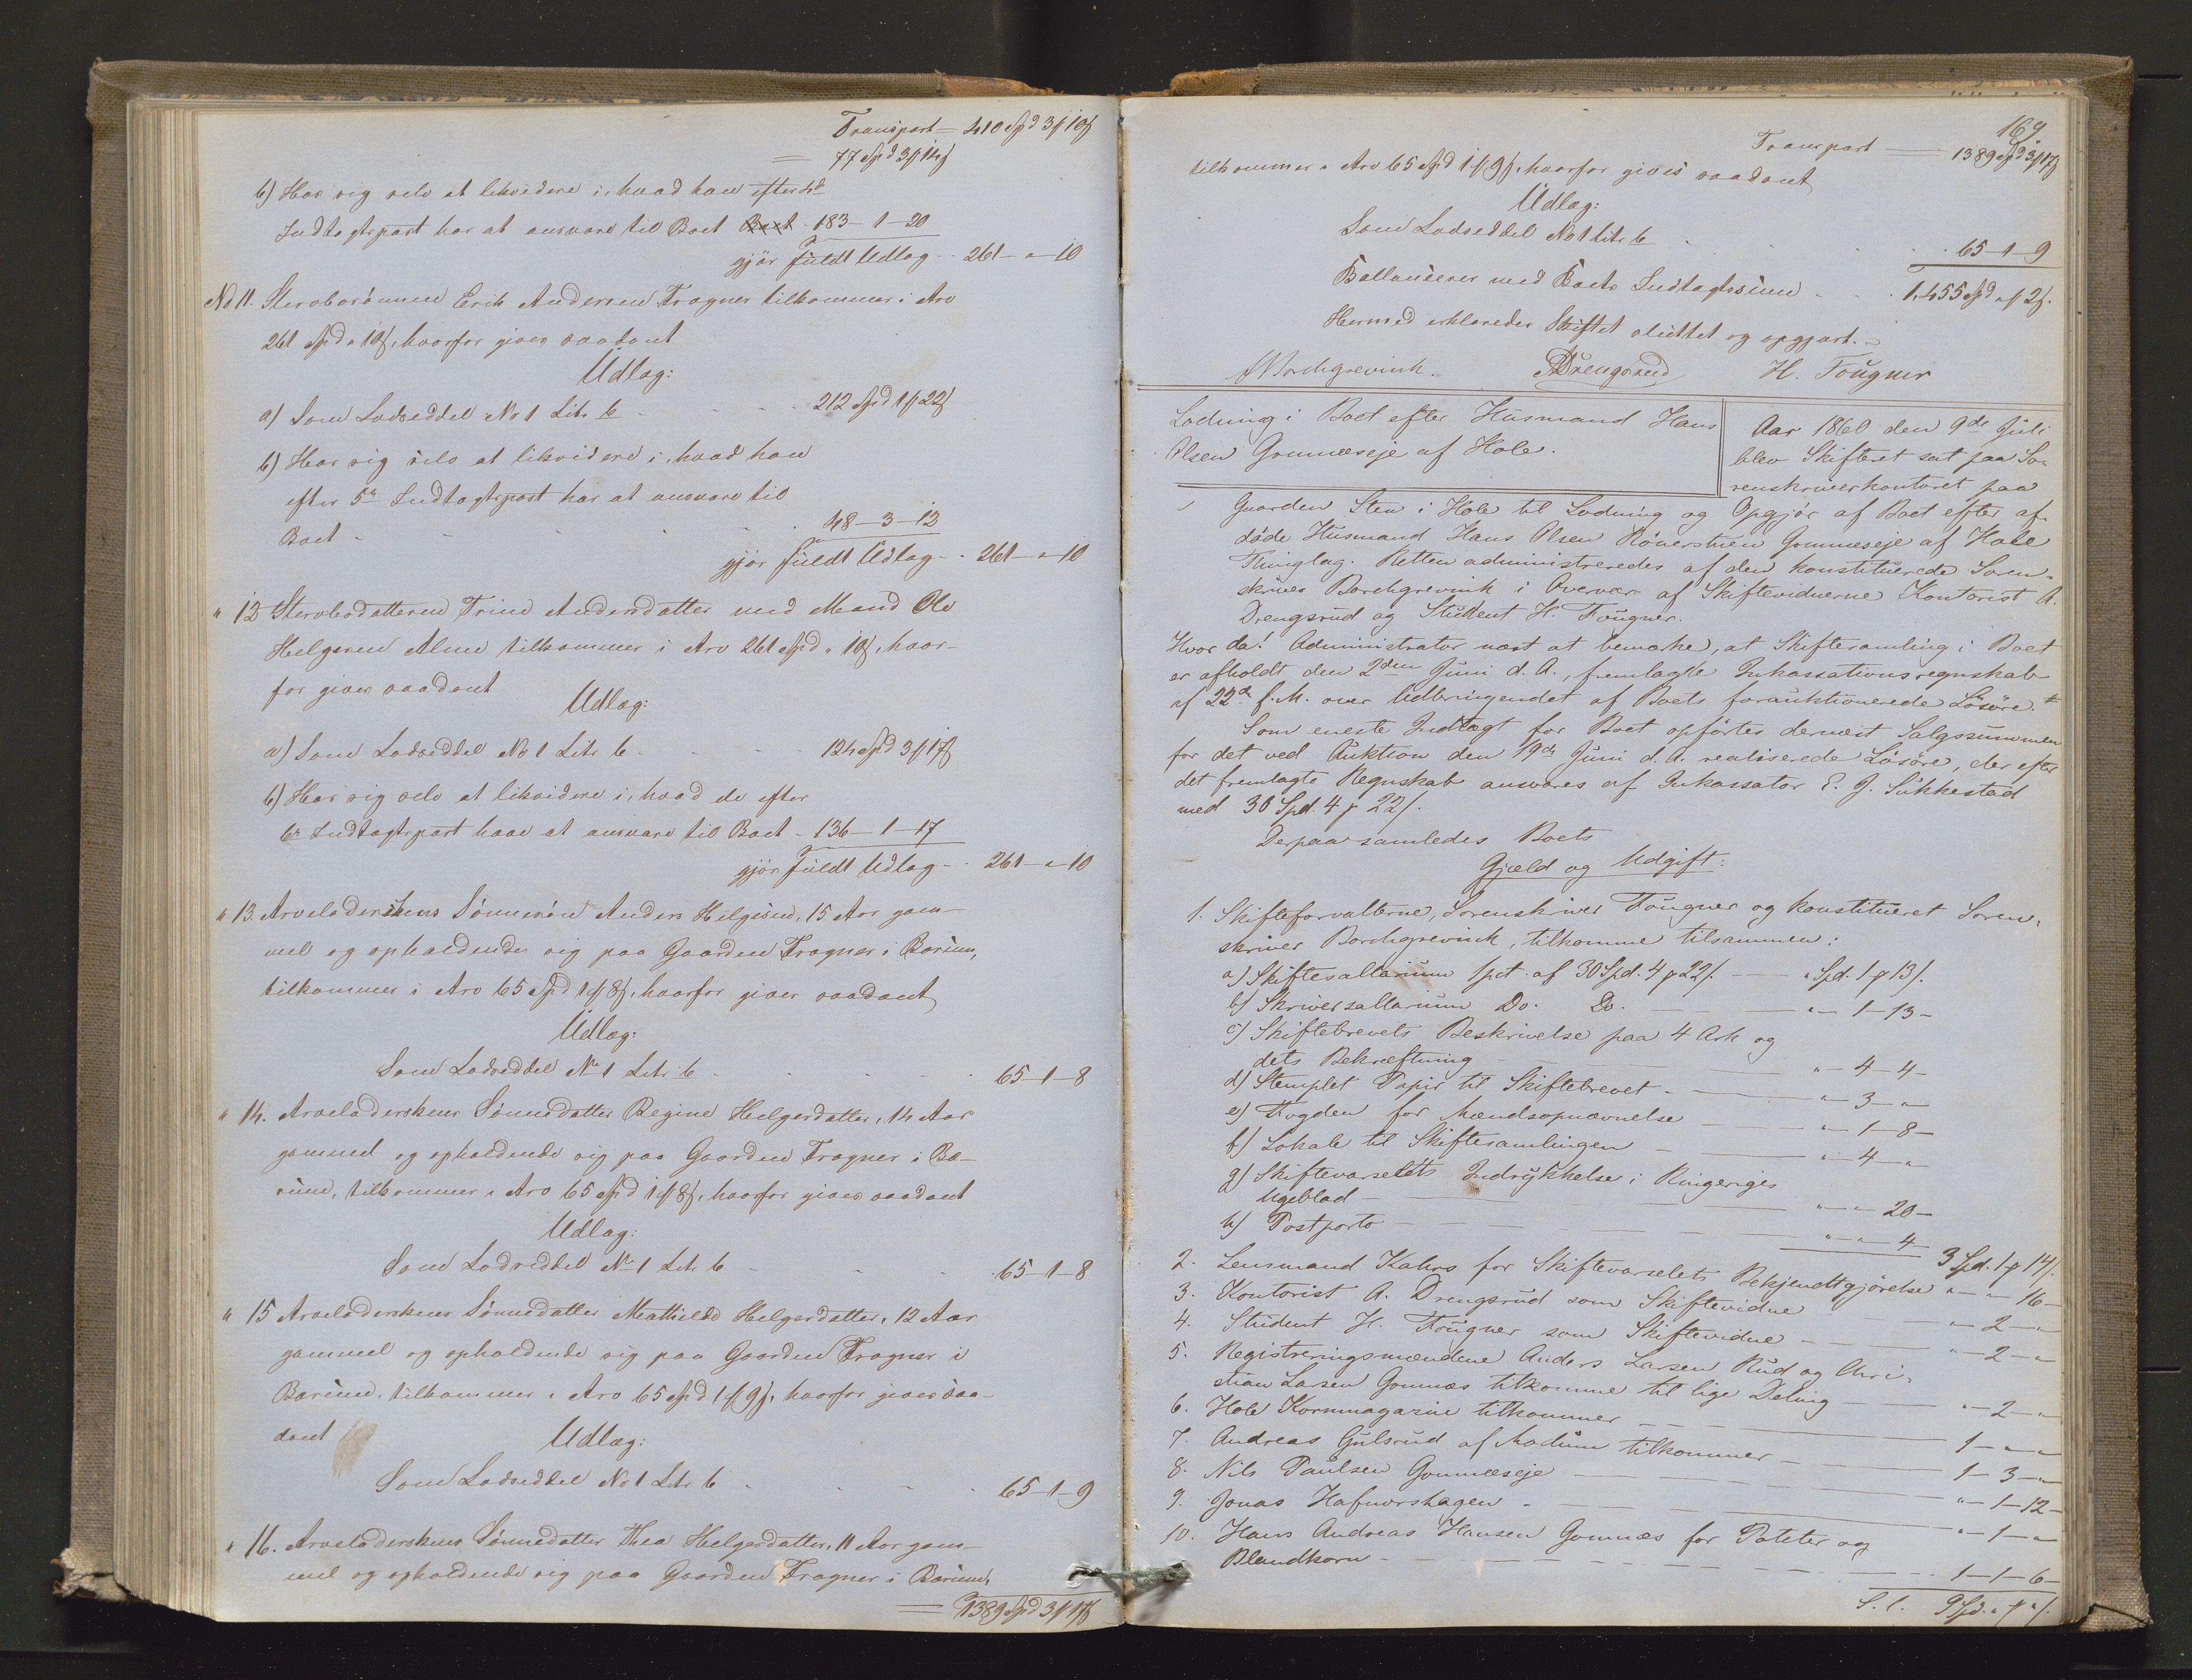 Transport — 410 Spd 3 ƒ 10 ß
= 77 Spd 3 ƒ 14 ß
b) Har sig selv at likvidere i, hvad han efter 4de
Indtægtspost har at ansvare til Boet Boet - 183-1-20
gjør fuldt Udlæg - - 261-"-10
No 11. Stervbosønnen Erik Andersen Fragner tilkommer i Arv
261 Spd " 10 ß, hvorfor gives saadant
Udlæg:
a) Som Lodseddel No 1 Litr b - - - 212 Spd 1 ƒ 22 ß
b) Har sig selv at likvidere i, hvad han
efter 5te Indtægtspost har at ansvare til
Boet - - - - 48-3-12
gjør fuldt Udlæg - - 261-"-10
" 12 Stervbodatteren Trine Andersdatter med Mand Ole
Helgesen Alme tilkommer i Arv 261 Spd " 10 ß, hvor-
for gives saadant
Udlæg:
a) Som Lodseddel No 1 Litr b - - - 124 Spd 3 ƒ 17 ß
b) Har sig selv at likvidere i, hvad de efter
6te Indtægtspost have at ansvare til Boet - 136-1-17
gjør fuldt Udlæg - - 261-"-10
" 13. Arveladerskens Sønnesøn Anders Helgesen, 15 Aar gam-
mel og opholdende sig paa Gaarden Fragner i Bærum,
tilkommer i Arv 65 Spd 1 ƒ 8 ß, hvorfor gives saadant
Udlæg:
Som Lodseddel No 1 Litr b - - - 65-1-8
" 14. Arveladerskens Sønnedatter Regine Helgesdatter, 14 Aar
gammel og opholdende sig paa Gaarden Fragner i Bæ-
rum, tilkommer i Arv 65 Spd 1 ƒ 8 ß, hvorfor gives saadant
Udlæg:
Som Lodseddel No 1 Litr b - - - 65-1-8
" 15 Arveladerskens Sønnedatter Mathilde Helgesdatter, 12 Aar
gammel og opholdende sig paa Gaarden Fragner i
Bærum, tilkommer i Arv 65 Spd 1 ƒ 9 ß, hvorfor gives saa-
dant
Udlæg:
Som Lodseddel No 1 Litr b - - - 65-1-9
" 16. Arveladerskens Sønnedatter Thea Helgesdatter, 11 Aar gam-
mel og opholdende sig paa Gaarden Fragner i Bærum,
= 1389 Spd 3 ƒ 17 ß
169
Transport — 1389 Spd 3 ƒ 17 ß
tilkommer i Arv 65 Spd 1 ƒ 9 ß, hvorfor gives saadant
Udlæg:
Som Lodseddel No 1 Litr b - - - 65-1-9
Ballancerer med Boets Indtægtssum - - 1,455 Spd " ƒ 2 ß.
Hermed erklæredes Skiftet sluttet og opgjort. -
Borchgrevink. ADrengsrud H. Fougner
Lodning i Boet efter Husmand Hans
Olsen Gomnæseje af Hole.
Aar 1860 den 9de Juli
blev Skifteret sat paa So-
renskriverkontoret paa
Gaarden Sten i Hole til Lodning og Opgjør af Boet efter af-
døde Husmand Hans Olsen Gomnæseje af Hole
Thinglag. Retten administreredes af den konstituerede Soren-
skriver Borchgrevink i Overvær af Skiftevidnerne Kontorist A.
Drengsrud og Student H. Fougner.
Hvor da! Administrator næst at bemærke, at Skiftesamling i Boet
er afholdt den 2den Juni d. A., fremlagde Inkassationsregnskab
af 22de f. M. over Udbringendet af Boets forauktionerede Løsøre.
Som eneste Indtægt for Boet opførtes dernæst Salgssummen
for det ved Auktion den 19de Juni d. A. realiserede Løsøre, der efter
det fremlagte Regnskab ansvares af Inkassator E. G. Sukkestad
med 30 Spd. 4 ƒ 22 ß.
Derpaa samledes Boets
Gjæld og Udgift:
1. Skifteforvalterne, Sorenskriver Fougner og konstitueret Soren-
skriver Borchgrevink, tilkomme tilsammen:
a) Skiftesallarium 1pct. af 30 Spd. 4 ƒ 22 ß. — " Spd. 1 ƒ 13 ß.
b) Skriversallarium Do. Do. — "-1-13-
c) Skiftebrevets Beskrivelse paa 4 Ark og
dets Bekræftning — "-4-4-
d) Stemplet Papir til Skiftebrevet - — "-3-"
e) Fogden for Mændsopnævnelse — "-1-8-
f) Lokale til Skiftesamlingen — "-4-"
g) Skiftevarselets Indrykkelse i Ringeriges
Ugeblad — "-"-20-
h) Postporto — "-"-4-
3 Spd. 1 ƒ 14 ß.
2. Lensmand Kahrs for Skiftevarselets Bekjendtgjørelse "-"-16-
3. Kontorist A. Drengsrud som Skiftevidne — "-2-"
4. Student H. Fougner som Skiftevidne — "-2-"
5. Registreringsmændene Anders Larsen Rud og Chri-
stian Larsen Gomnæs tilkomme til lige Deling — "-2-"
6. Hole Kornmagazin tilkommer — 1-"-"
7. Andreas Gulsrud af Modum tilkommer — 1-3-"
8. Nils Paulsen Gomnæseje — "-1-12-
9. Jonas Hafnorshagen - — "-1-"
10. Hans Andreas Hansen Gomnæs for Poteter og
Blandkorn - — 1-1-6-
S. l. 9 Spd. " ƒ " ß.